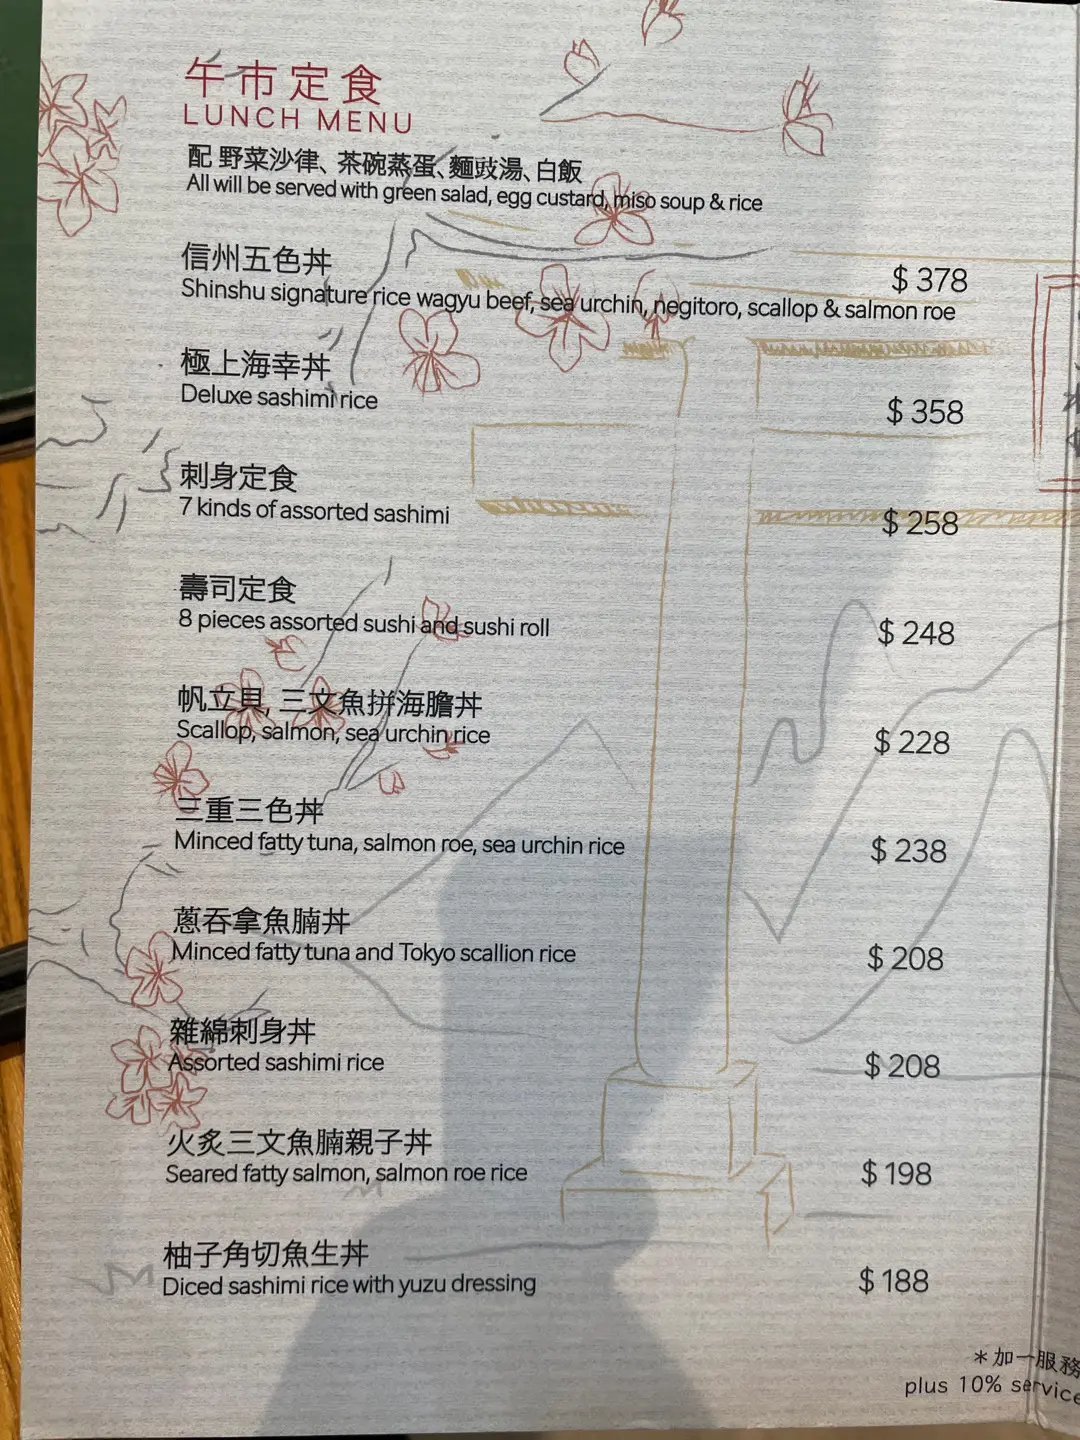 午市定食
LUNCH MENU
配 野菜沙律、茶碗蒸蛋、麵豉湯、白飯
All will be served with green salad, egg custard, miso soup & rice
信州五色丼
$ 378
Shinshu signature rice wagyu beef, sea urchin, negitoro, scallop & salmon roe
極上海幸丼
Deluxe sashimi rice
$ 358
刺身定食
7 kinds of assorted sashimi
$ 258
壽司定食
8 pieces assorted sushi and sushi roll
$ 248
帆立貝, 三文魚拼海膽丼
Scallop, salmon, sea urchin rice
$ 228
三重三色丼
Minced fatty tuna, salmon roe, sea urchin rice
$ 238
蔥吞拿魚腩丼
Minced fatty tuna and Tokyo scallion rice
$ 208
雜錦刺身丼
Assorted sashimi rice
$ 208
火炙三文魚腩親子丼
Seared fatty salmon, salmon roe rice
$ 198
柚子角切魚生丼
Diced sashimi rice with yuzu dressing
$ 188
*加一服務
plus 10% service